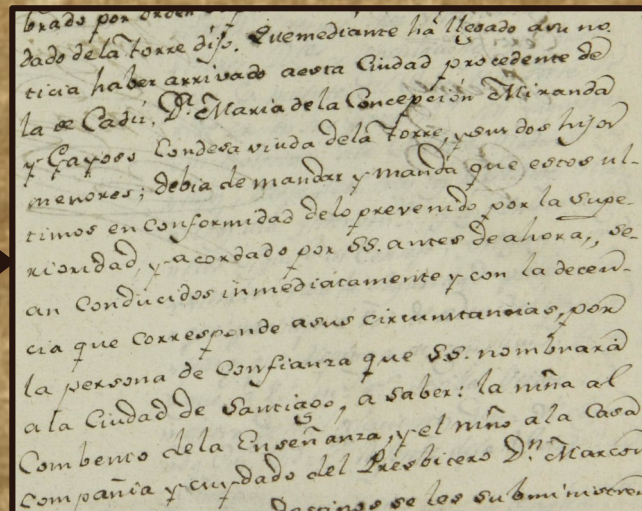 brado por orden
dado dela Torre dijo. Que mediante ha llegado asu no
ticia haber arrivado aesta Ciudad procedente de
la de Cadiz, Dª. Maria de la Concepción Miranda
y Gayoso Condesa viuda dela Torre, y sus dos hijos
menores; debia de mandar y manda que estos ul-
timos en conformidad delo prevenido por la supe-
rioridad, y acordado por SS. antes de ahora, se-
an Conducidos inmediatamente y con la decen-
cia que corresponde asus circunstancias, por
la persona de Confianza que SS. nombrará
a la Ciudad de Santiago, a saber: la niña al
Combento dela Enseñanza, y el niño a la Casa
compañia y cuydado del Presbitero Dⁿ. Marcos
se les subministren